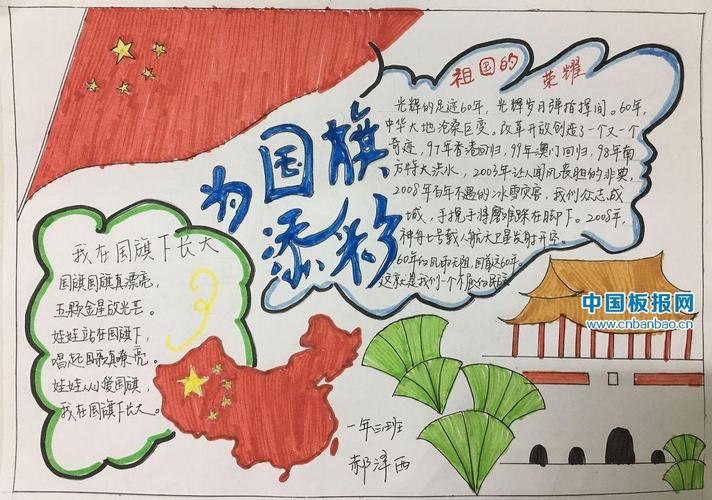 为国旗
添彩
祖国的 荣耀
光辉的足迹60年,光辉岁月弹指挥间。60年,
中华大地沧桑巨变。改革开放创造了一个又一个
奇迹,97年香港回归,99年澳门回归,98年南
方特大洪水,2003年让人闻风丧胆的非典,
2008年百年不遇的冰雪灾害,我们众志成
城,手挽手将磨难踩在脚下。2008年,
神舟七号载人航天卫星发射升空。
60年风雨无阻,回首这60年。
这就是我们一个个
我在国旗下长大
国旗国旗真漂亮,
五颗金星放光芒。
娃娃站在国旗下,
唱起国歌真嘹亮。
娃娃从小爱国旗,
我在国旗下长大。
一年三班
郝泽西
中国板报网
www.cnbanbao.cn